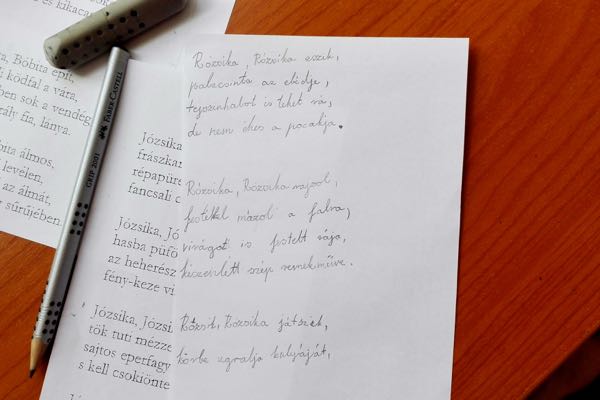 és kikaca
Bóbita épít,
ködfal a vára,
ben sok a vendég,
rály fia, lánya.
Bóbita álmos,
levelén,
az álmát,
sűrűjében.
FABER CASTELL
GRIP 2001
Józsika
frászkar
répapüre
fancsali c
Józsika, Jó
hasba püfö
az heherész
fény-keze vi
Józsika, Józsi
tök tuti mézze
sajtos eperfagy
s kell csokiönte
Rózsika, Rózsika eszik,
palacsinta az ebédje,
tejszínhabot is tehet rá,
de nem éhes a pocakja.
Rózsika, Rózsika rajzol,
festékkel mázol a falra,
virágot is festett rája,
készenlétt szép remekműve.
Rózsik, Rózsika játszik,
körbe ugralja kutyáját,